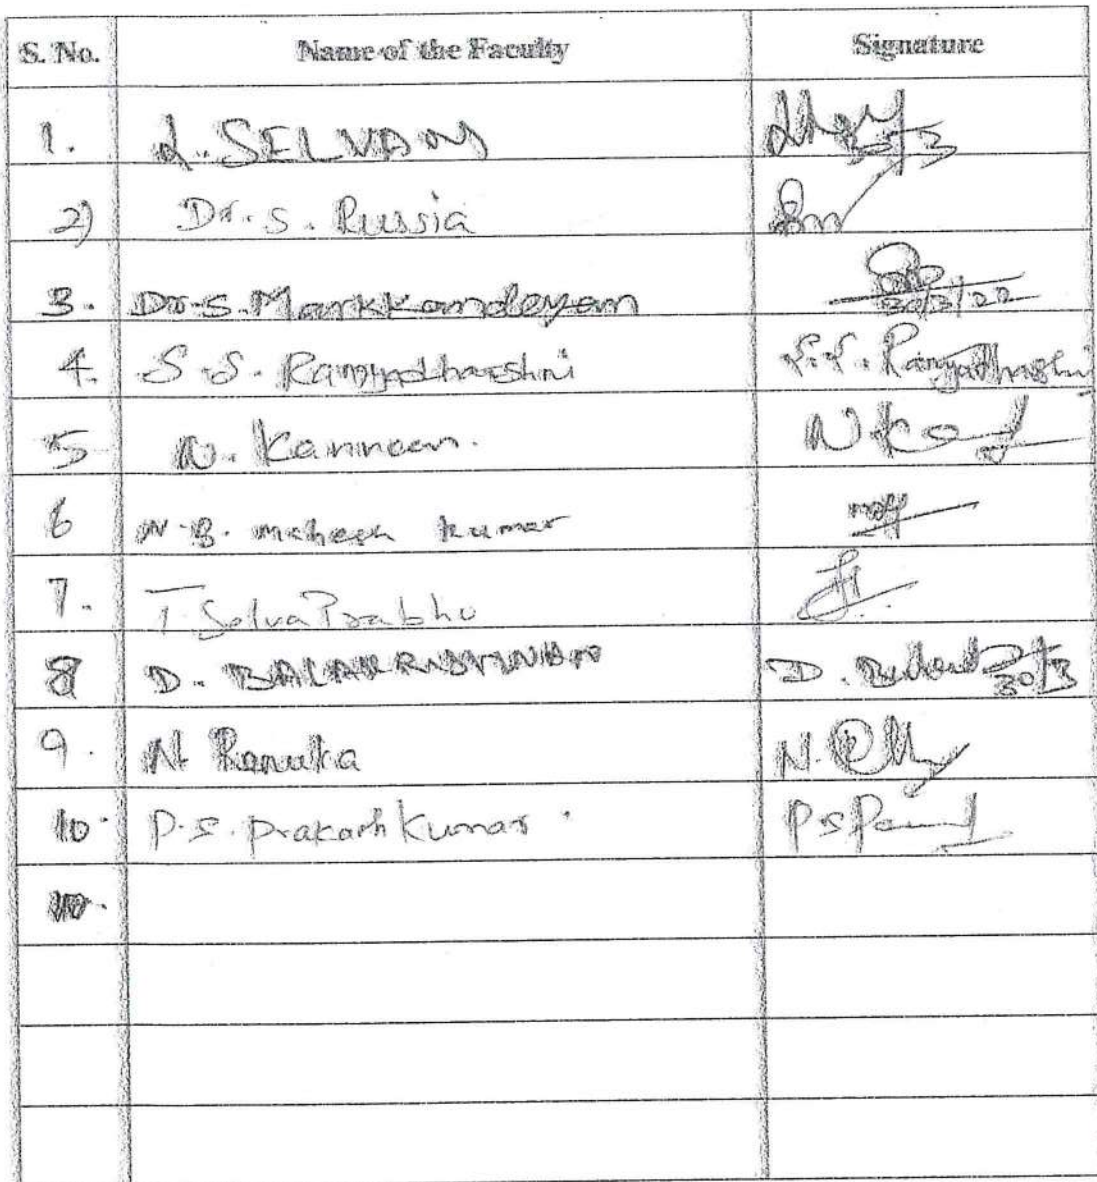 S. No. Name of the Faculty Signature
1. L. SELVAN 30/3
2) Dr. S. Russia
3. Dr. S. Markkandeyan 30/3/22
4. S. S. Ramyadharshni S. S. Ramyadharshni
5 N. Kannan.
6 N. B. mahesh kumar
7. T. Selva Prabhu
8 D. BALAKRISHNAN D. 30/3
9. N. Renuka N.
10. P. S. Prakash Kumar. P S
10.